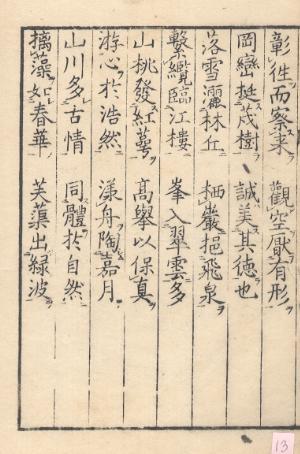 彰往而察来　觀空厭有形
岡巒挺茂樹　誠美其徳也
落雪灑林丘　栖巖挹飛泉
繫纜臨江樓　峯入翠雲多
山桃發紅萼　高擧以保真
游心於浩然　漾舟陶嘉月
山川多古情　同體於自然
摛藻如春華　芙蕖出緑波
13